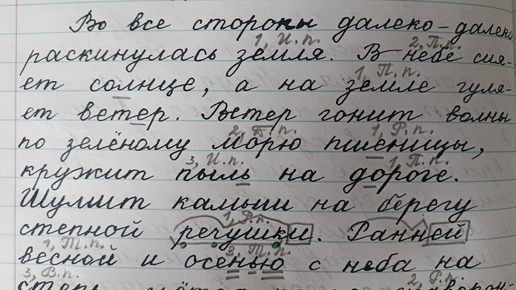 Во все стороны далеко-далеко
1, И.п. 2, П.п.
раскинулась земля. В небе сия-
1, П.п.
ет солнце, а на земле гуля-
ет ветер. Ветер гонит волны
2, Д.п. 1, Р.п.
по зелёному морю пшеницы,
3, И.п. 1, П.п.
кружит пыль на дороге.
Шумит камыш на берегу
1, Р.п.
степной речушки. Ранней
1, Т.п. 3, Т.п.
весной и осенью с неба на
3, В.п. 2, Р.п.